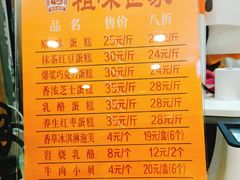 祖味世家
品名 售价 八折
原味蛋糕 25元/斤 20元/斤
抹茶红豆蛋糕 35元/斤 28元/斤
爆浆巧克力蛋糕 35元/斤 28元/斤
香浓芝士蛋糕 35元/斤 28元/斤
乳酪蛋糕 35元/斤 28元/斤
养生红枣蛋糕 35元/斤 28元/斤
香草冰淇淋泡芙 4元/个 19元/盒(6个)
岩烧乳酪 8元/个 12元/2个
牛肉小贝 4元/个 20元/盒(6个)